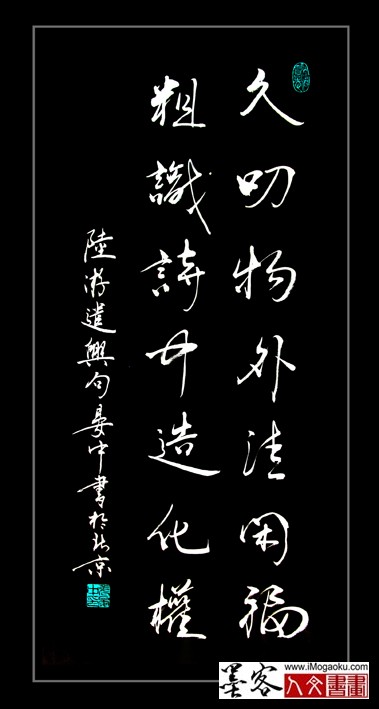 久叨物外清閑福
粗識詩中造化權
陸游遣興句晏中書於北京
www.iMogaoku.com
墨客
人文書畫